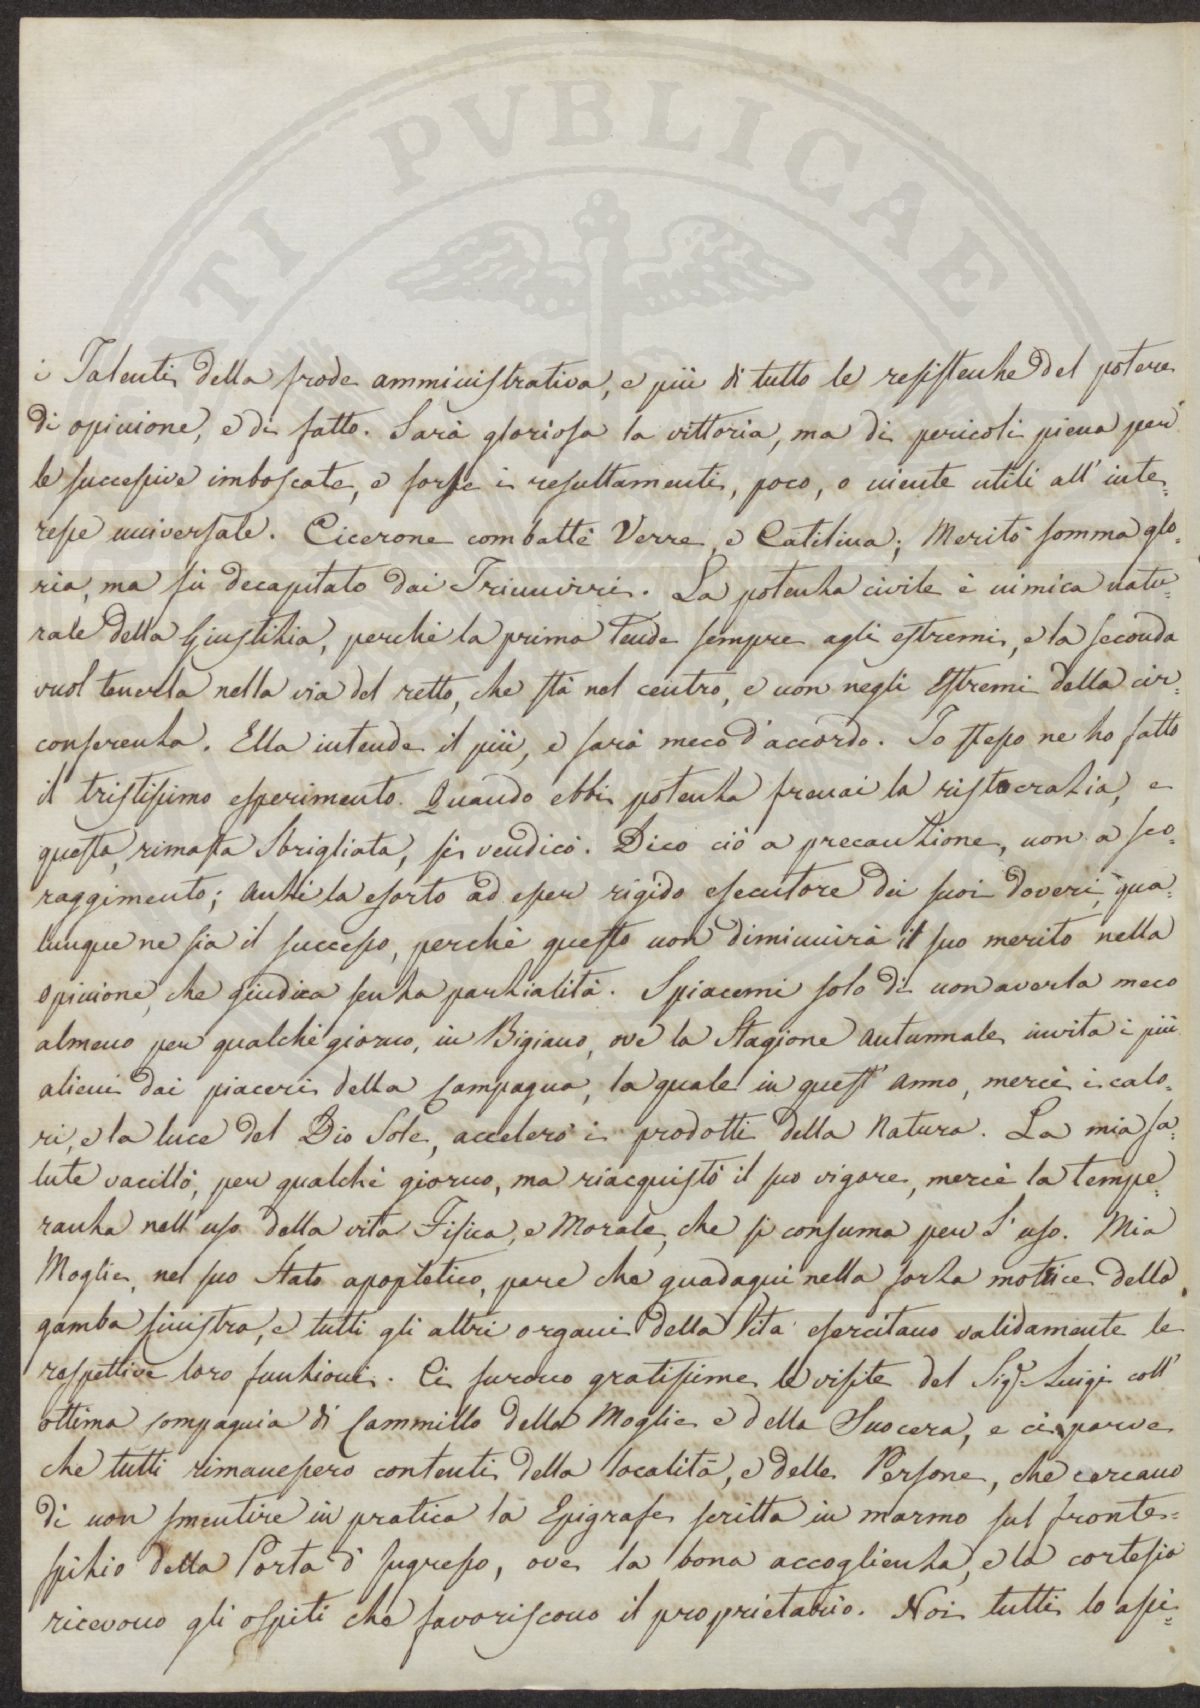 TI PVBLICAE
i Talenti della frode amministrativa, e più di tutto le resistenze del potere
di opinione, e di fatto. Sarà gloriosa la vittoria, ma di pericoli piena per
le successive imboscate, e forse i resultamenti, poco, o niente utili all' inte=
resse universale. Cicerone combattè Verre, e Catilina; Meritò somma glo=
ria, ma fù decapitato dai Triumvirri. La potenza civile è nimica natu=
rale della Giustizia, perchè la prima tende sempre agli estremi, e la seconda
vuol tenerla nella via del retto, che stà nel centro, e non negli Estremi della cir=
conferenza. Ella intende il più, e sarà meco d'accordo. Io stesso ne ho fatto
il tristissimo esperimento. Quando ebbi potenza frenai la ristocrazia, e
questa, rimasta sbrigliata, si vendicò. Dico ciò a precauzione, non a sco=
raggimento; anzi la esorto ad esser rigido esecutore dei suoi doveri, qua=
lunque ne sia il successo, perchè questo non diminuirà il suo merito nella
opinione, che giudica senza parzialità. Spiacemi solo di non averla meco
almeno per qualche giorno, in Bigiano, ove la Stagione autunnale invita i più
alieni dai piaceri della Campagna, la quale in quest' anno, mercè i calo=
ri, e la luce del Dio Sole, accelerò i prodotti della Natura. La mia sa=
lute vacillò, per qualche giorno, ma riacquistò il suo vigore, mercè la tempe=
ranza nell' uso della vita Fisica, e Morale, che si consuma per l' uso. Mia
Moglie, nel suo Stato apopletico, pare che guadagni nella forza motrice della
gamba sinistra, e tutti gli altri organi della Vita esercitano validamente le
respettive loro funzioni. Ci furono gratissime le visite del Sigr. Luigi coll'
ottima compagnia di Cammillo della Moglie e della Suocera, e ci parve
che tutti rimanessero contenti della località, e delle Persone, che cercano
di non smentire in pratica la Epigrafe scritta in marmo sul fronte=
spizio della Porta d' Ingresso, ove la bona accoglienza, e la cortesia
ricevono gli ospiti che favoriscono il proprietario. Noi tutti lo assi=